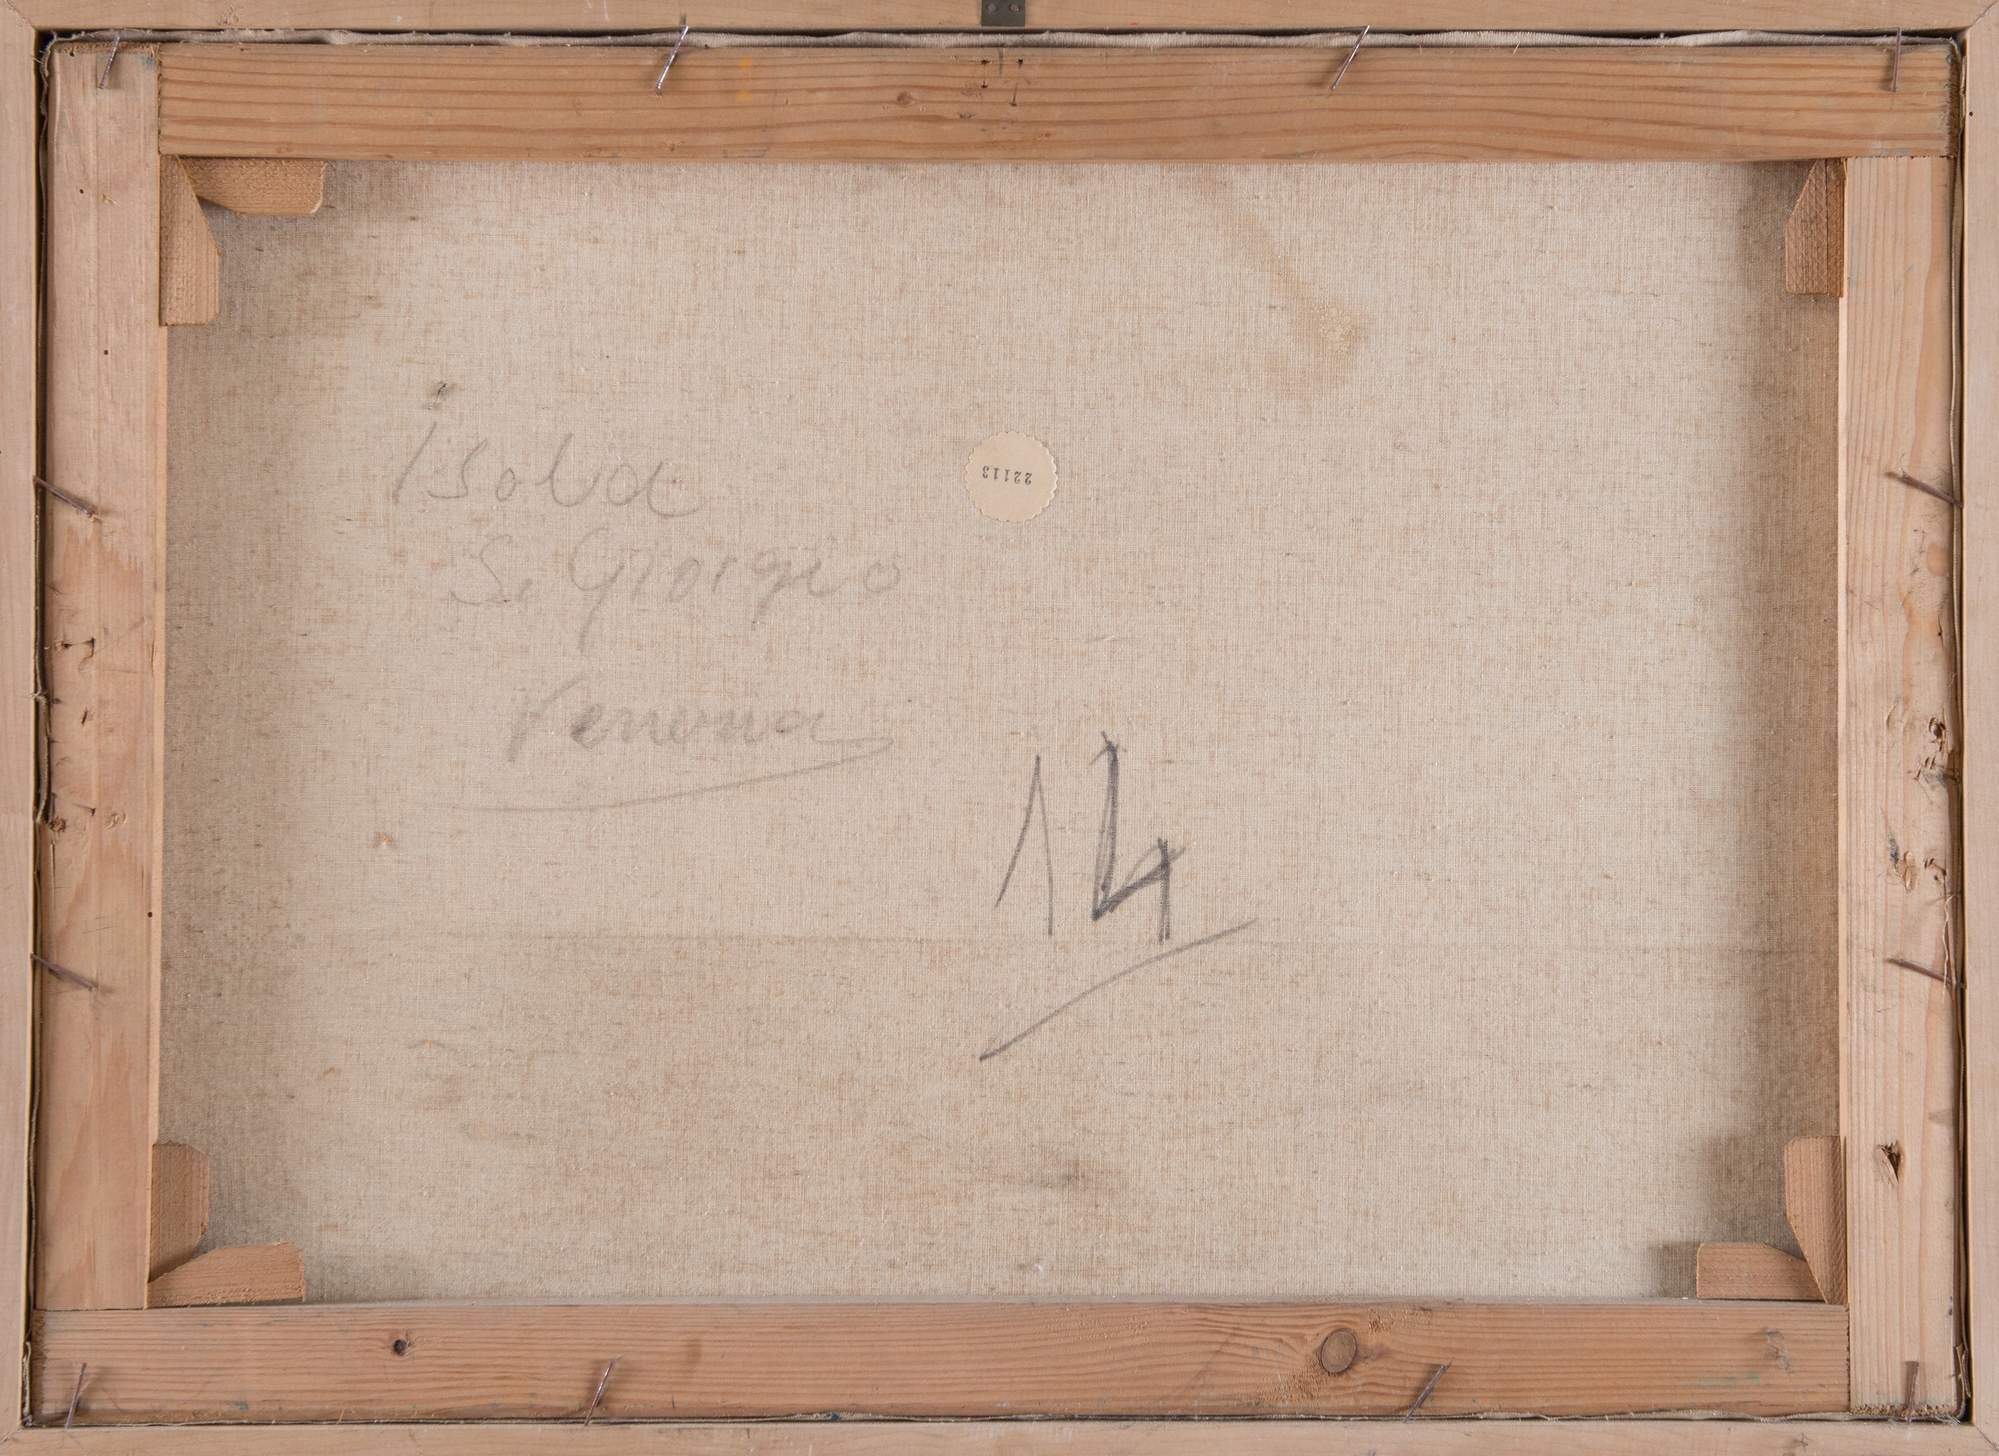 Isola
S. Giorgio
22113
14